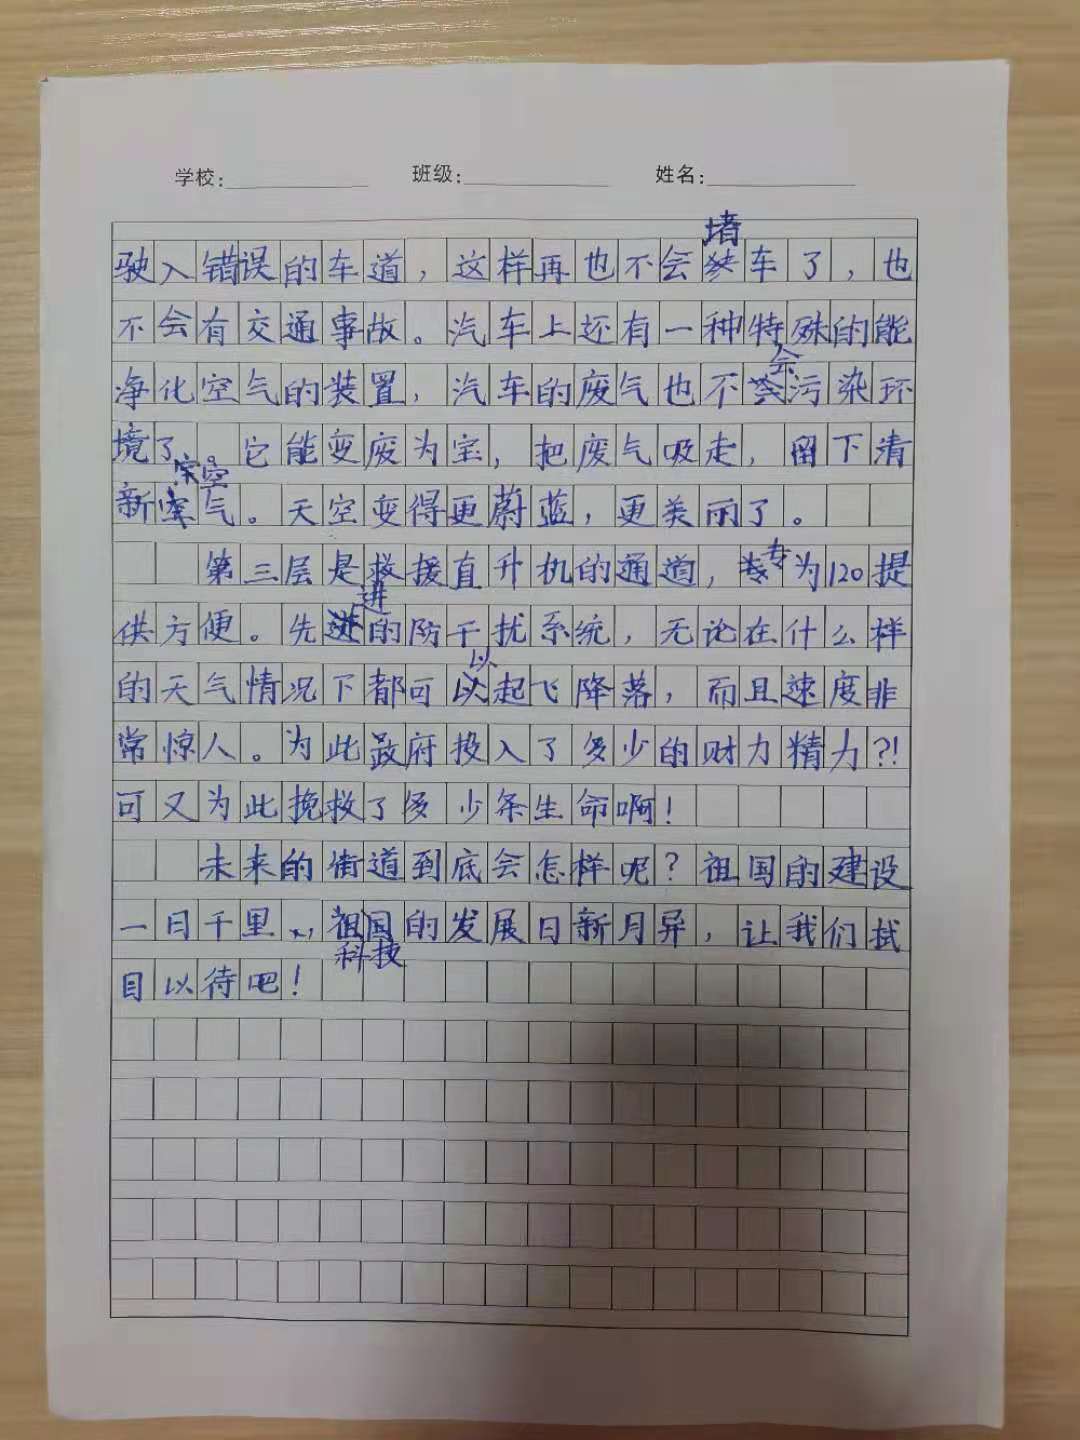 学校: 班级: 姓名:
驶入错误的车道，这样再也不会堵车了，也
不会有交通事故。汽车上还有一种特殊的能
净化空气的装置，汽车的废气也不会污染环
境了。它能变废为宝，把废气吸走，留下清
新空气。天空变得更蔚蓝，更美丽了。
第三层是救援直升机的通道，专为120提
供方便。先进的防干扰系统，无论在什么样
的天气情况下都可以起飞降落，而且速度非
常惊人。为此政府投入了多少的财力精力?!
可又为此挽救了多少条生命啊!
未来的街道到底会怎样呢?祖国的建设
一日千里，祖国的发展日新月异，让我们拭
科技
目以待吧!